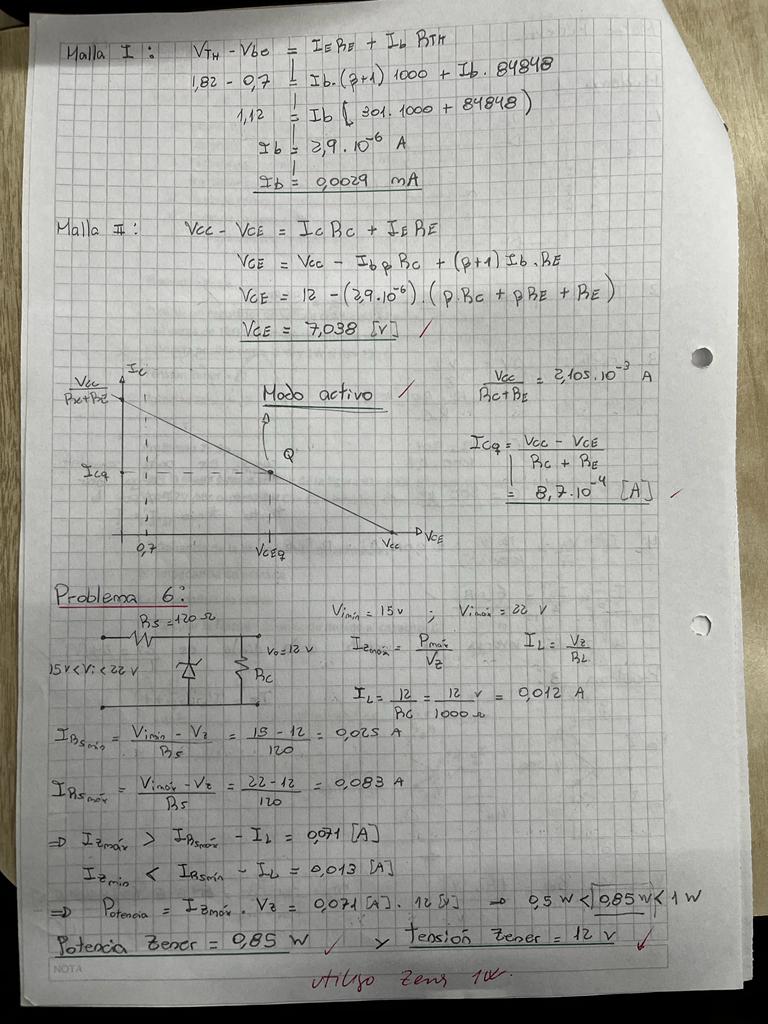 Malla I : VTH - Vbe = IE RE + Ib RTH
1,82 - 0,7 = Ib.(β+1) 1000 + Ib. 84848
1,12 = Ib ( 301. 1000 + 84848 )
Ib = 2,9.10⁻⁶ A
Ib = 0,0029 mA
Malla II : Vcc - VCE = Ic Rc + IE RE
VCE = Vcc - Ib β Rc + (β+1) Ib. RE
VCE = 12 - (2,9.10⁻⁶).( β.Rc + βRE + RE )
VCE = 7,038 [V]
Vcc / Rc+RE
Ic
Modo activo
Vcc / Rc+RE = 2,105.10⁻³ A
Q
ICQ
ICQ = Vcc - VCE / Rc + RE
= 8,7.10⁻⁴ [A]
0,7 VCEQ Vcc VCE
Problema 6:
Rs = 120 Ω
Vimín = 15 v ; Vimáx = 22 V
15 v < Vi < 22 V
Vo = 12 v
Rc
Izmáx = Pmáx / Vz IL = Vz / RL
IL = 12 / Rc = 12 v / 1000 Ω = 0,012 A
IRsmín = Vimín - Vz / Rs = 15 - 12 / 120 = 0,025 A
IRsmáx = Vimáx - Vz / Rs = 22 - 12 / 120 = 0,083 A
⇒ Izmáx > IRsmáx - IL = 0,071 [A]
Izmin < IRsmín - IL = 0,013 [A]
⇒ Potencia = Izmáx. Vz = 0,071 [A]. 12 [V] → 0,5 W < 0,85 W < 1 W
Potencia Zener = 0,85 W y Tensión Zener = 12 v
NOTA
utiliso Zener 1W.